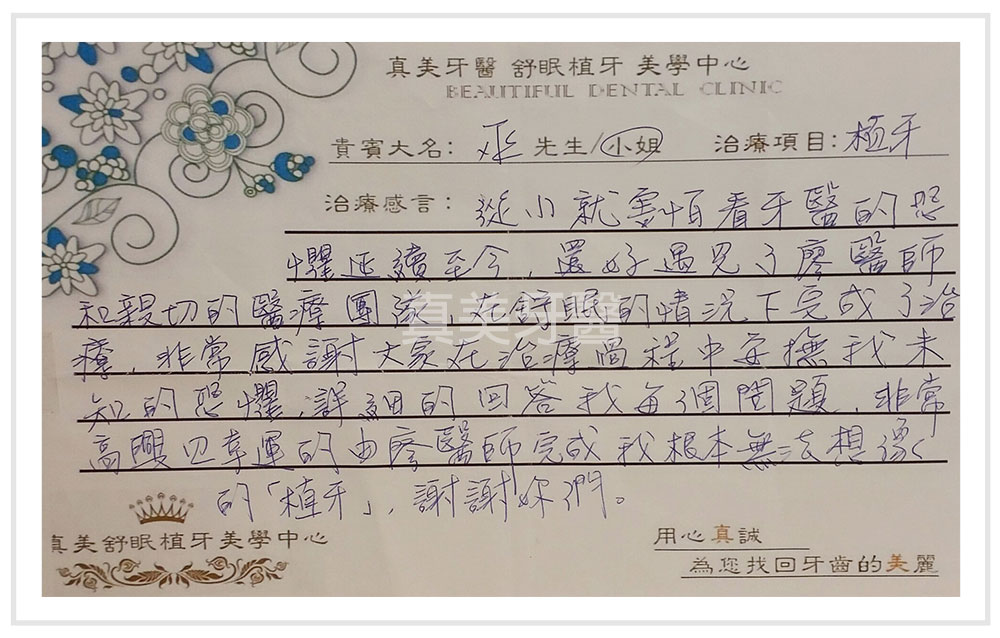 真美牙醫 舒眠植牙 美學中心
BEAUTIFUL DENTAL CLINIC
貴賓大名： 先生/小姐 治療項目：植牙
治療感言：從小就害怕看牙醫的恐
懼延續至今，還好遇見了廖醫師
和親切的醫療團隊，在舒眠的情況下完成了治
療，非常感謝大家在治療過程中安撫我未
知的恐懼，詳細的回答我每個問題，非常
高興且幸運的由廖醫師完成我根本無法想像
的「植牙」，謝謝妳們。
真美牙醫
真美舒眠植牙美學中心
用心真誠
為您找回牙齒的美麗